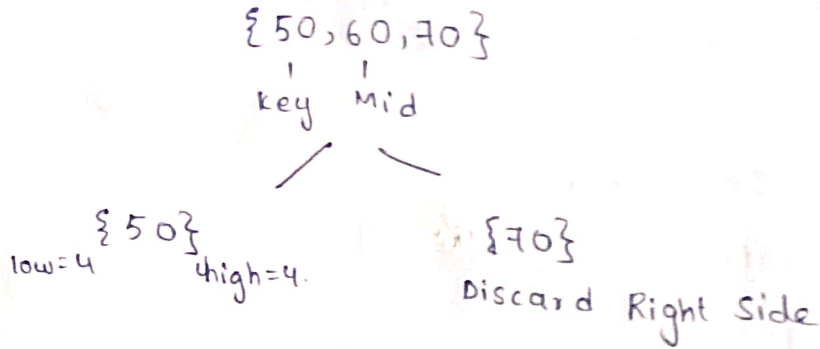 {50,60,70}
Key Mid
{50} {70}
low=4 high=4.
Discard Right Side